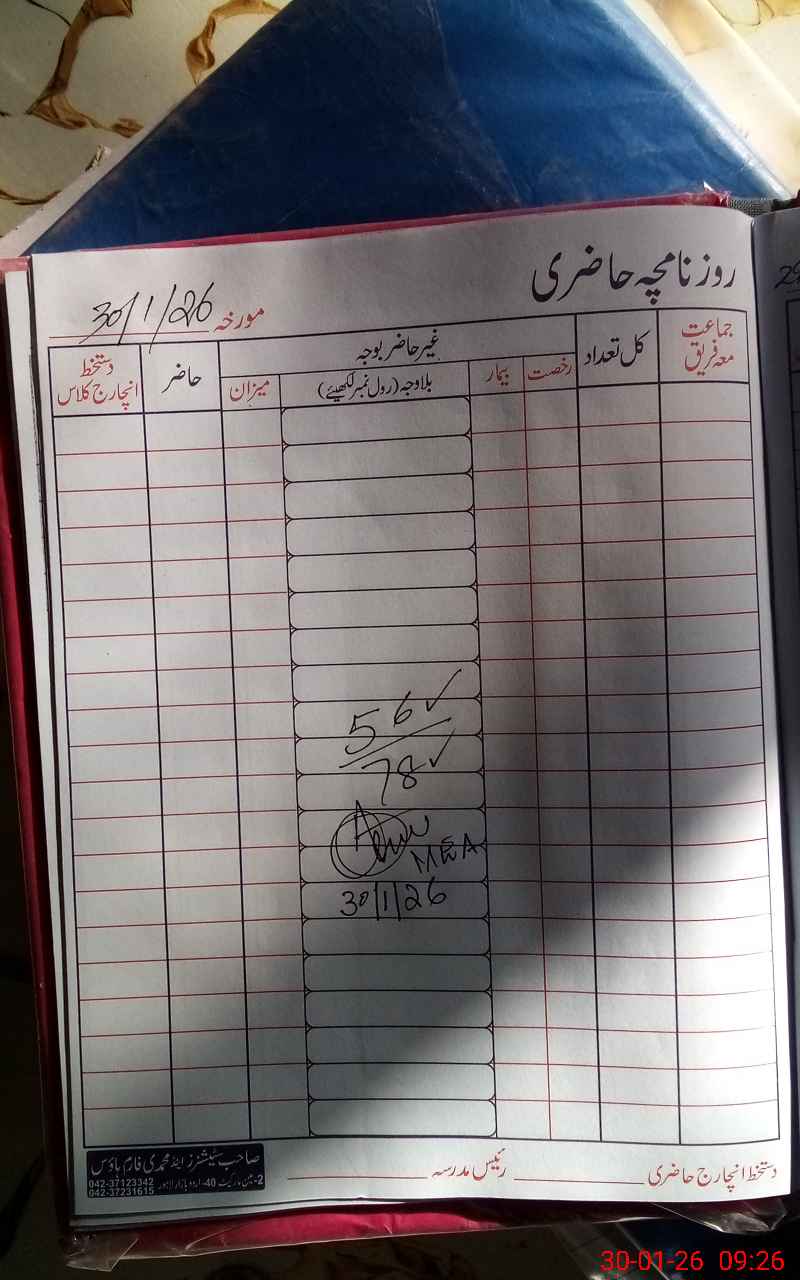 روزنامچہ حاضری
مورخہ 30/1/26
جماعت معہ فریق
کل تعداد
غیر حاضر بوجہ
رخصت
بیمار
بلاوجہ (رول نمبر لکھیئے)
میزان
حاضر
دستخط انچارج کلاس
56✓
78✓
MEA
30/1/26
دستخط انچارج حاضری
رئیس مدرسہ
صاحب سٹیشنرز اینڈ محمدی فارم ہاؤس
2-مین مارکیٹ 40-اردو بازار لاہور
042-37123342
042-37231615
30-01-26 09:26